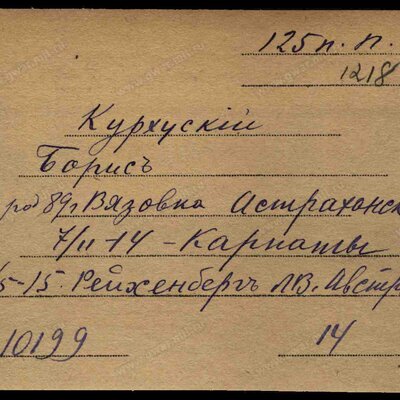 125 п. п.
1218
Курхускій
Борисъ
род 89 г Вязовка Астраханск
7/II-14 - Карпаты
5-15. Рейхенбергъ лв. Австр
10199
14